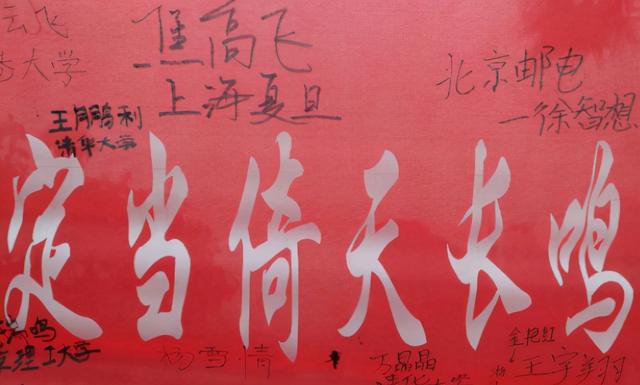 云飞
大学
焦高飞
上海复旦
北京邮电
—徐智想
王鹏利
清华大学
定当倚天长鸣
鸣
理工大学
杨雪情
万晶晶
清华大学
金艳红
王宇翔